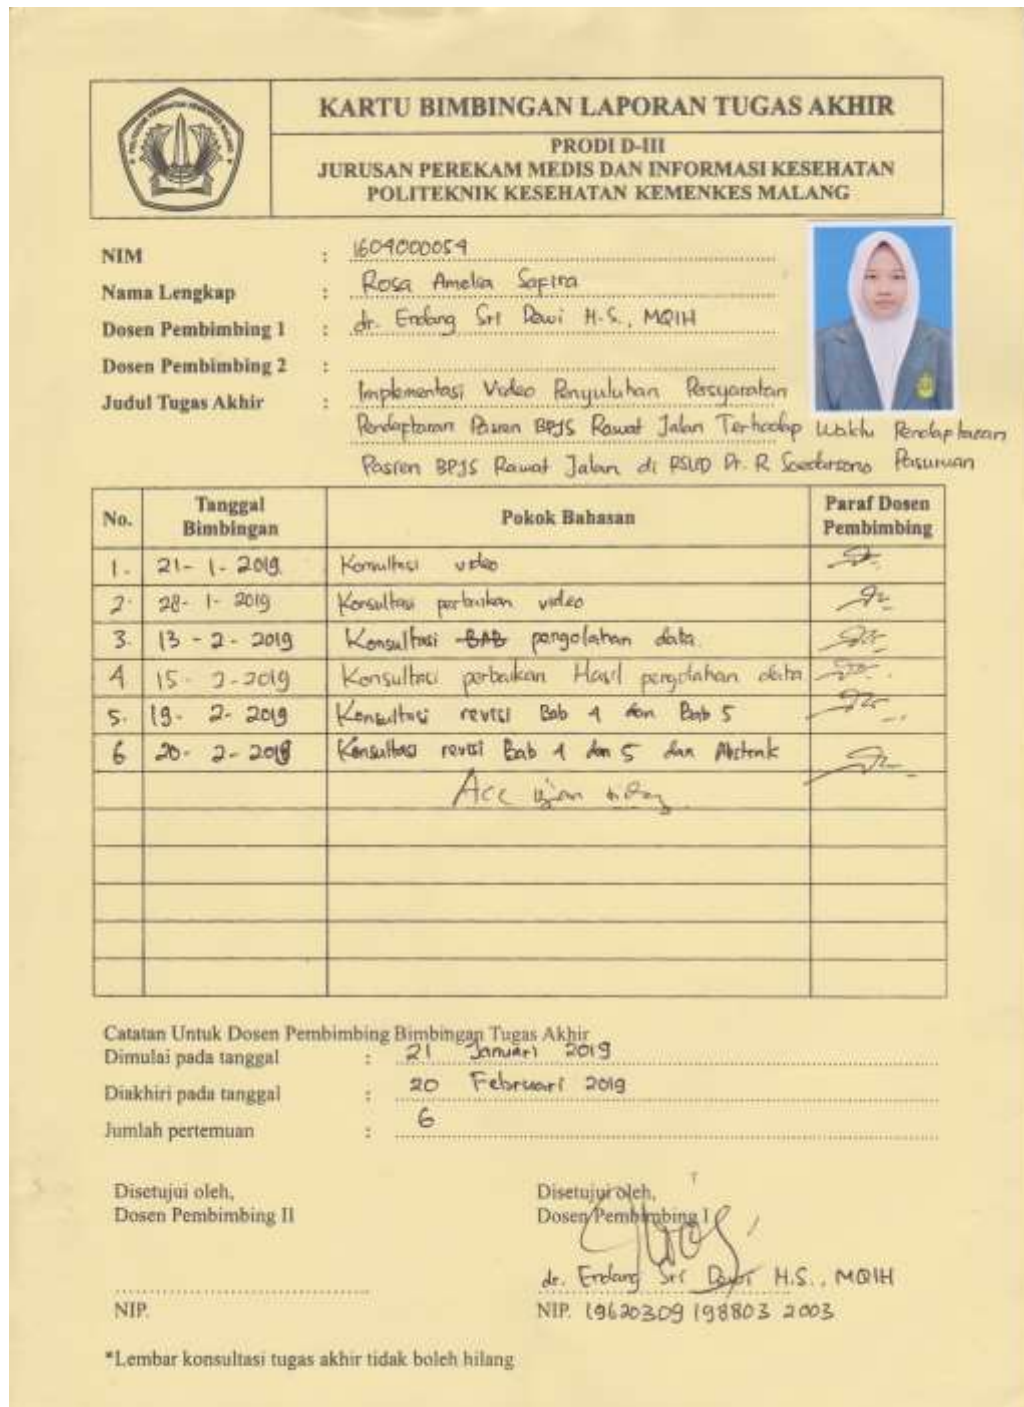 KARTU BIMBINGAN LAPORAN TUGAS AKHIR
PRODI D-III
JURUSAN PEREKAM MEDIS DAN INFORMASI KESEHATAN
POLITEKNIK KESEHATAN KEMENKES MALANG
NIM : 1609000059
Nama Lengkap : Rosa Amelia Safira
Dosen Pembimbing 1 : dr. Endang Sri Dewi H.S., MQIH
Dosen Pembimbing 2 :
Judul Tugas Akhir : Implementasi Video Penyuluhan Persyaratan
Pendaftaran Pasien BPJS Rawat Jalan Terhadap Waktu Pendaftaran
Pasien BPJS Rawat Jalan di RSUD Dr. R Soedarsono Pasuruan
No. Tanggal Bimbingan Pokok Bahasan Paraf Dosen Pembimbing
1. 21-1-2019 Konsultasi video
2. 28-1-2019 Konsultasi perbaikan video
3. 13-2-2019 Konsultasi BAB pengolahan data
4 15-2-2019 Konsultasi perbaikan Hasil pengolahan data
5. 19-2-2019 Konsultasi revisi Bab 4 dan Bab 5
6 20-2-2019 Konsultasi revisi Bab 4 dan 5 dan Abstrak
Acc ujian
Catatan Untuk Dosen Pembimbing Bimbingan Tugas Akhir
Dimulai pada tanggal : 21 Januari 2019
Diakhiri pada tanggal : 20 Februari 2019
Jumlah pertemuan : 6
Disetujui oleh, Disetujui oleh,
Dosen Pembimbing II Dosen Pembimbing I
dr. Endang Sri Dewi H.S., MQIH
NIP. NIP. 19620309 198803 2003
*Lembar konsultasi tugas akhir tidak boleh hilang